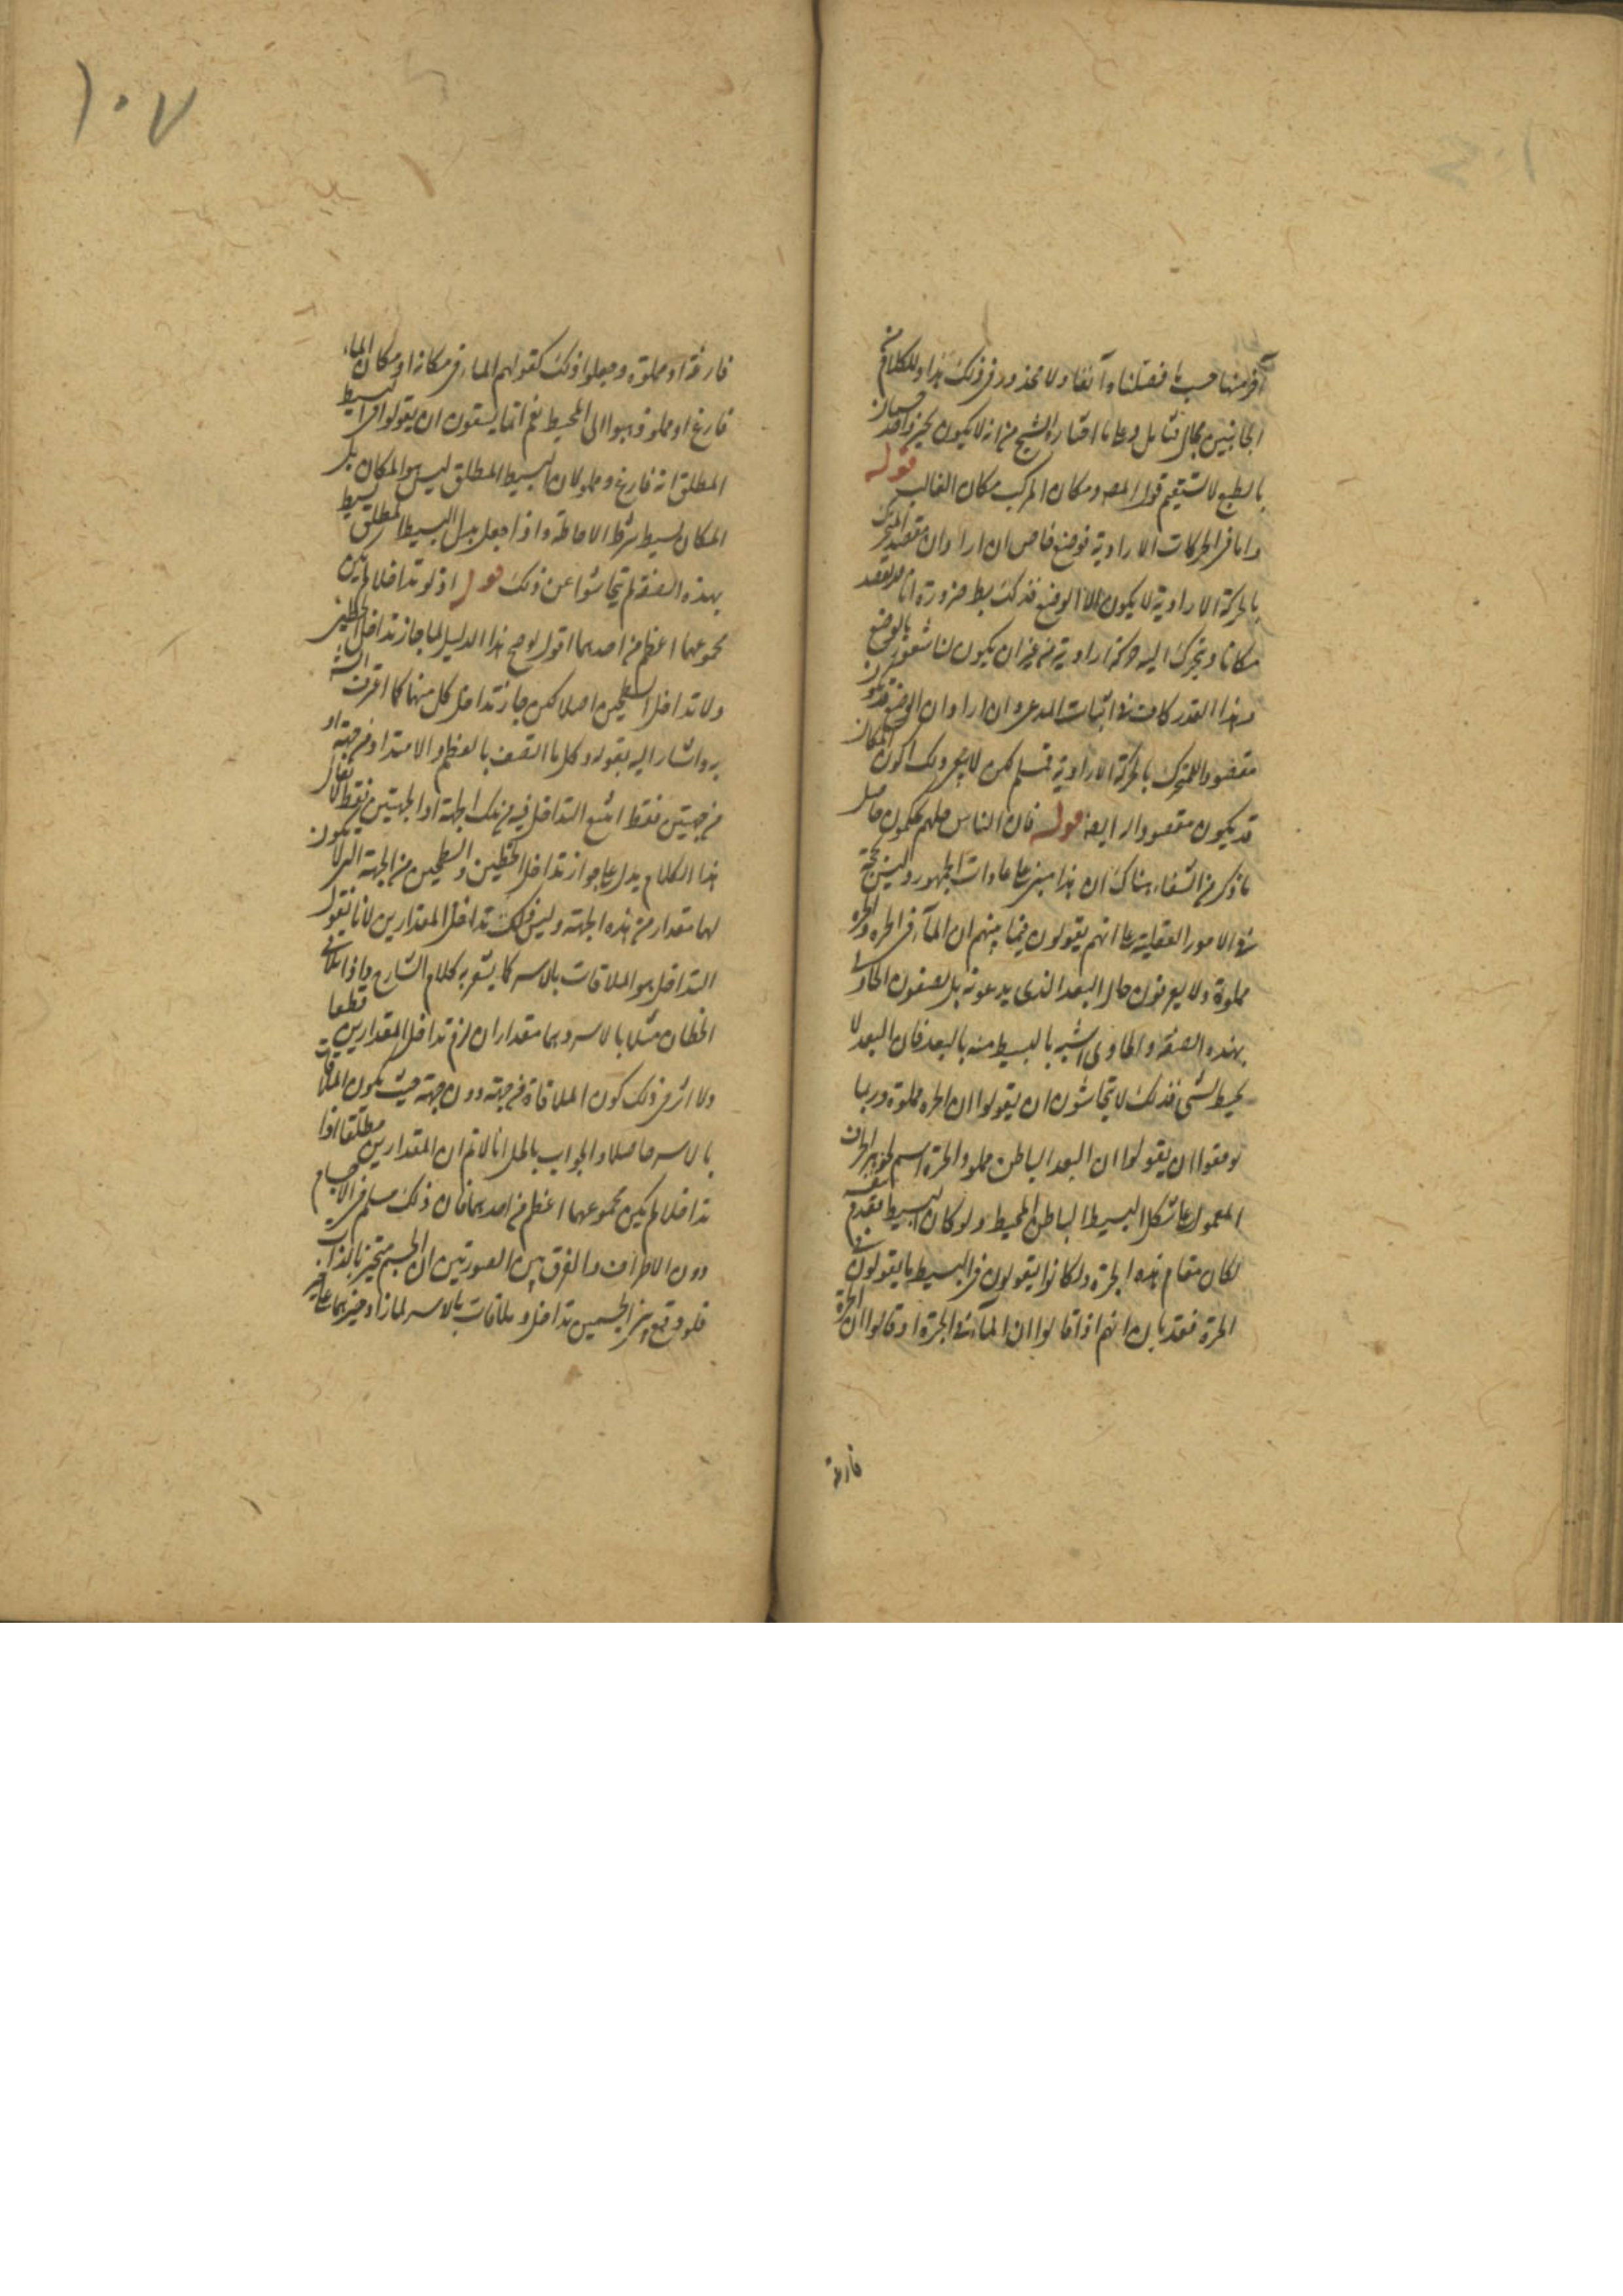 آخر منها حسب ما فصلناه آنفا ولا محذور فى ذلك هذا وللكلام من
الجانبين مجال فتأمل وعلى ما اختاره الشيخ من انه لا يكون لجسم واحد حيزان
بالطبع لا يستقيم قول المصـ ومكان المركب مكان الغالب قوله
واما فى الحركات الارادية فوضع خاص ان اراد ان مقصد المتحرك
بالحركة الارادية لا يكون الا الوضع فذلك بط ضرورة انا قد نقصد
مكانا ونتحرك اليه حركة ارادية من غير ان يكون لنا شعور بالوضع
وهذا القدر كاف فى اثبات المدعى وان اراد ان الوضع قد يكون
مقصود المتحرك بالحركة الارادية فمسلم لكن لا يجدى ذلك لكون المكان
قد يكون مقصودا ايضا قوله فان الناس كلهم يحكمون حاصل
ما ذكر فى الشفاء هناك ان هذا مبنى على عادات الجمهور وليس بحجة
فى الامور العقلية على انهم يقولون فيما بينهم ان الماء فى الجرة والجرة
مملوة ولا يعرفون حال البعد الذى يدعونه بل يصفون الحاوى
بهذه الصفة والحاوى اشبه بالبسيط منه بالبعد فان البعد لا
يحيط بشى فذلك لا يتحاشون ان يقولوا ان الجرة مملوة وربما
توقفوا ان يقولوا ان البعد الباطن مملو والجرة اسم لجوهر الخزف
المعمول على شكل البسيط الباطن المحيط ولو كان البسيط يقوم بنفسه
لكان مقام هذه الجرة ولكانوا يقولون فى البسيط ما يقولون فى
الجرة فقد بان انهم اذا قالوا ان الماء فى الجرة او قالوا ان الجرة
فارغة
١٠٧
فارغة او مملوة وجعلوا ذلك كقولهم الماء فى مكانه او مكان الماء
فارغ او مملو ذهبوا الى المحيط نعم انما يسعون ان يقولوا فى البسيط
المطلق انه فارغ ومملو لان البسيط المطلق ليس هو المكان بل
المكان بسيط بشرط الاحاطة واذا جعل بدل البسيط المطلق بسيط
بهذه الصفة لم يتحاشوا عن ذلك قوله اذ لو تداخلا لم يكن
مجموعهما اعظم من احدهما اقول لو صح هذا الدليل لما جاز تداخل الخطين
ولا تداخل السطحين اصلا لكن جاز تداخل كل منهما كما اعترف الشـ
به واشار اليه بقوله وكل ما اتصف بالعظم والامتداد من جهة او
من جهتين فقط امتنع التداخل فيه من تلك الجهة او الجهتين فقط لا يقال
هذا الكلام يدل على جواز تداخل الخطين والسطحين من الجهة التى لا يكون
لهما مقدار من هذه الجهة وليس ذلك تداخل المقدارين لانا نقول
التداخل هو الملاقات بالاسر كما يشعر به كلام الشارح واذا تلاقى
الخطان مثلا بالاسر وهما مقداران لزم تداخل المقدارين قطعا
ولا اثر فى ذلك كون الملاقاة من جهة دون جهة حيث يكون الملاقات
بالاسر حاصلا والجواب بالحل انا لا نم ان المقدارين مطلقا اذا
تداخلا لم يكن مجموعهما اعظم من احدهما فان ذلك مسلم فى الاجسام
دون الاطراف والفرق بين الصورتين ان الجسم متحيز بالذات
فلو وقع بين الجسمين تداخل وملاقات بالاسر لما زاد حيزهما على حيز